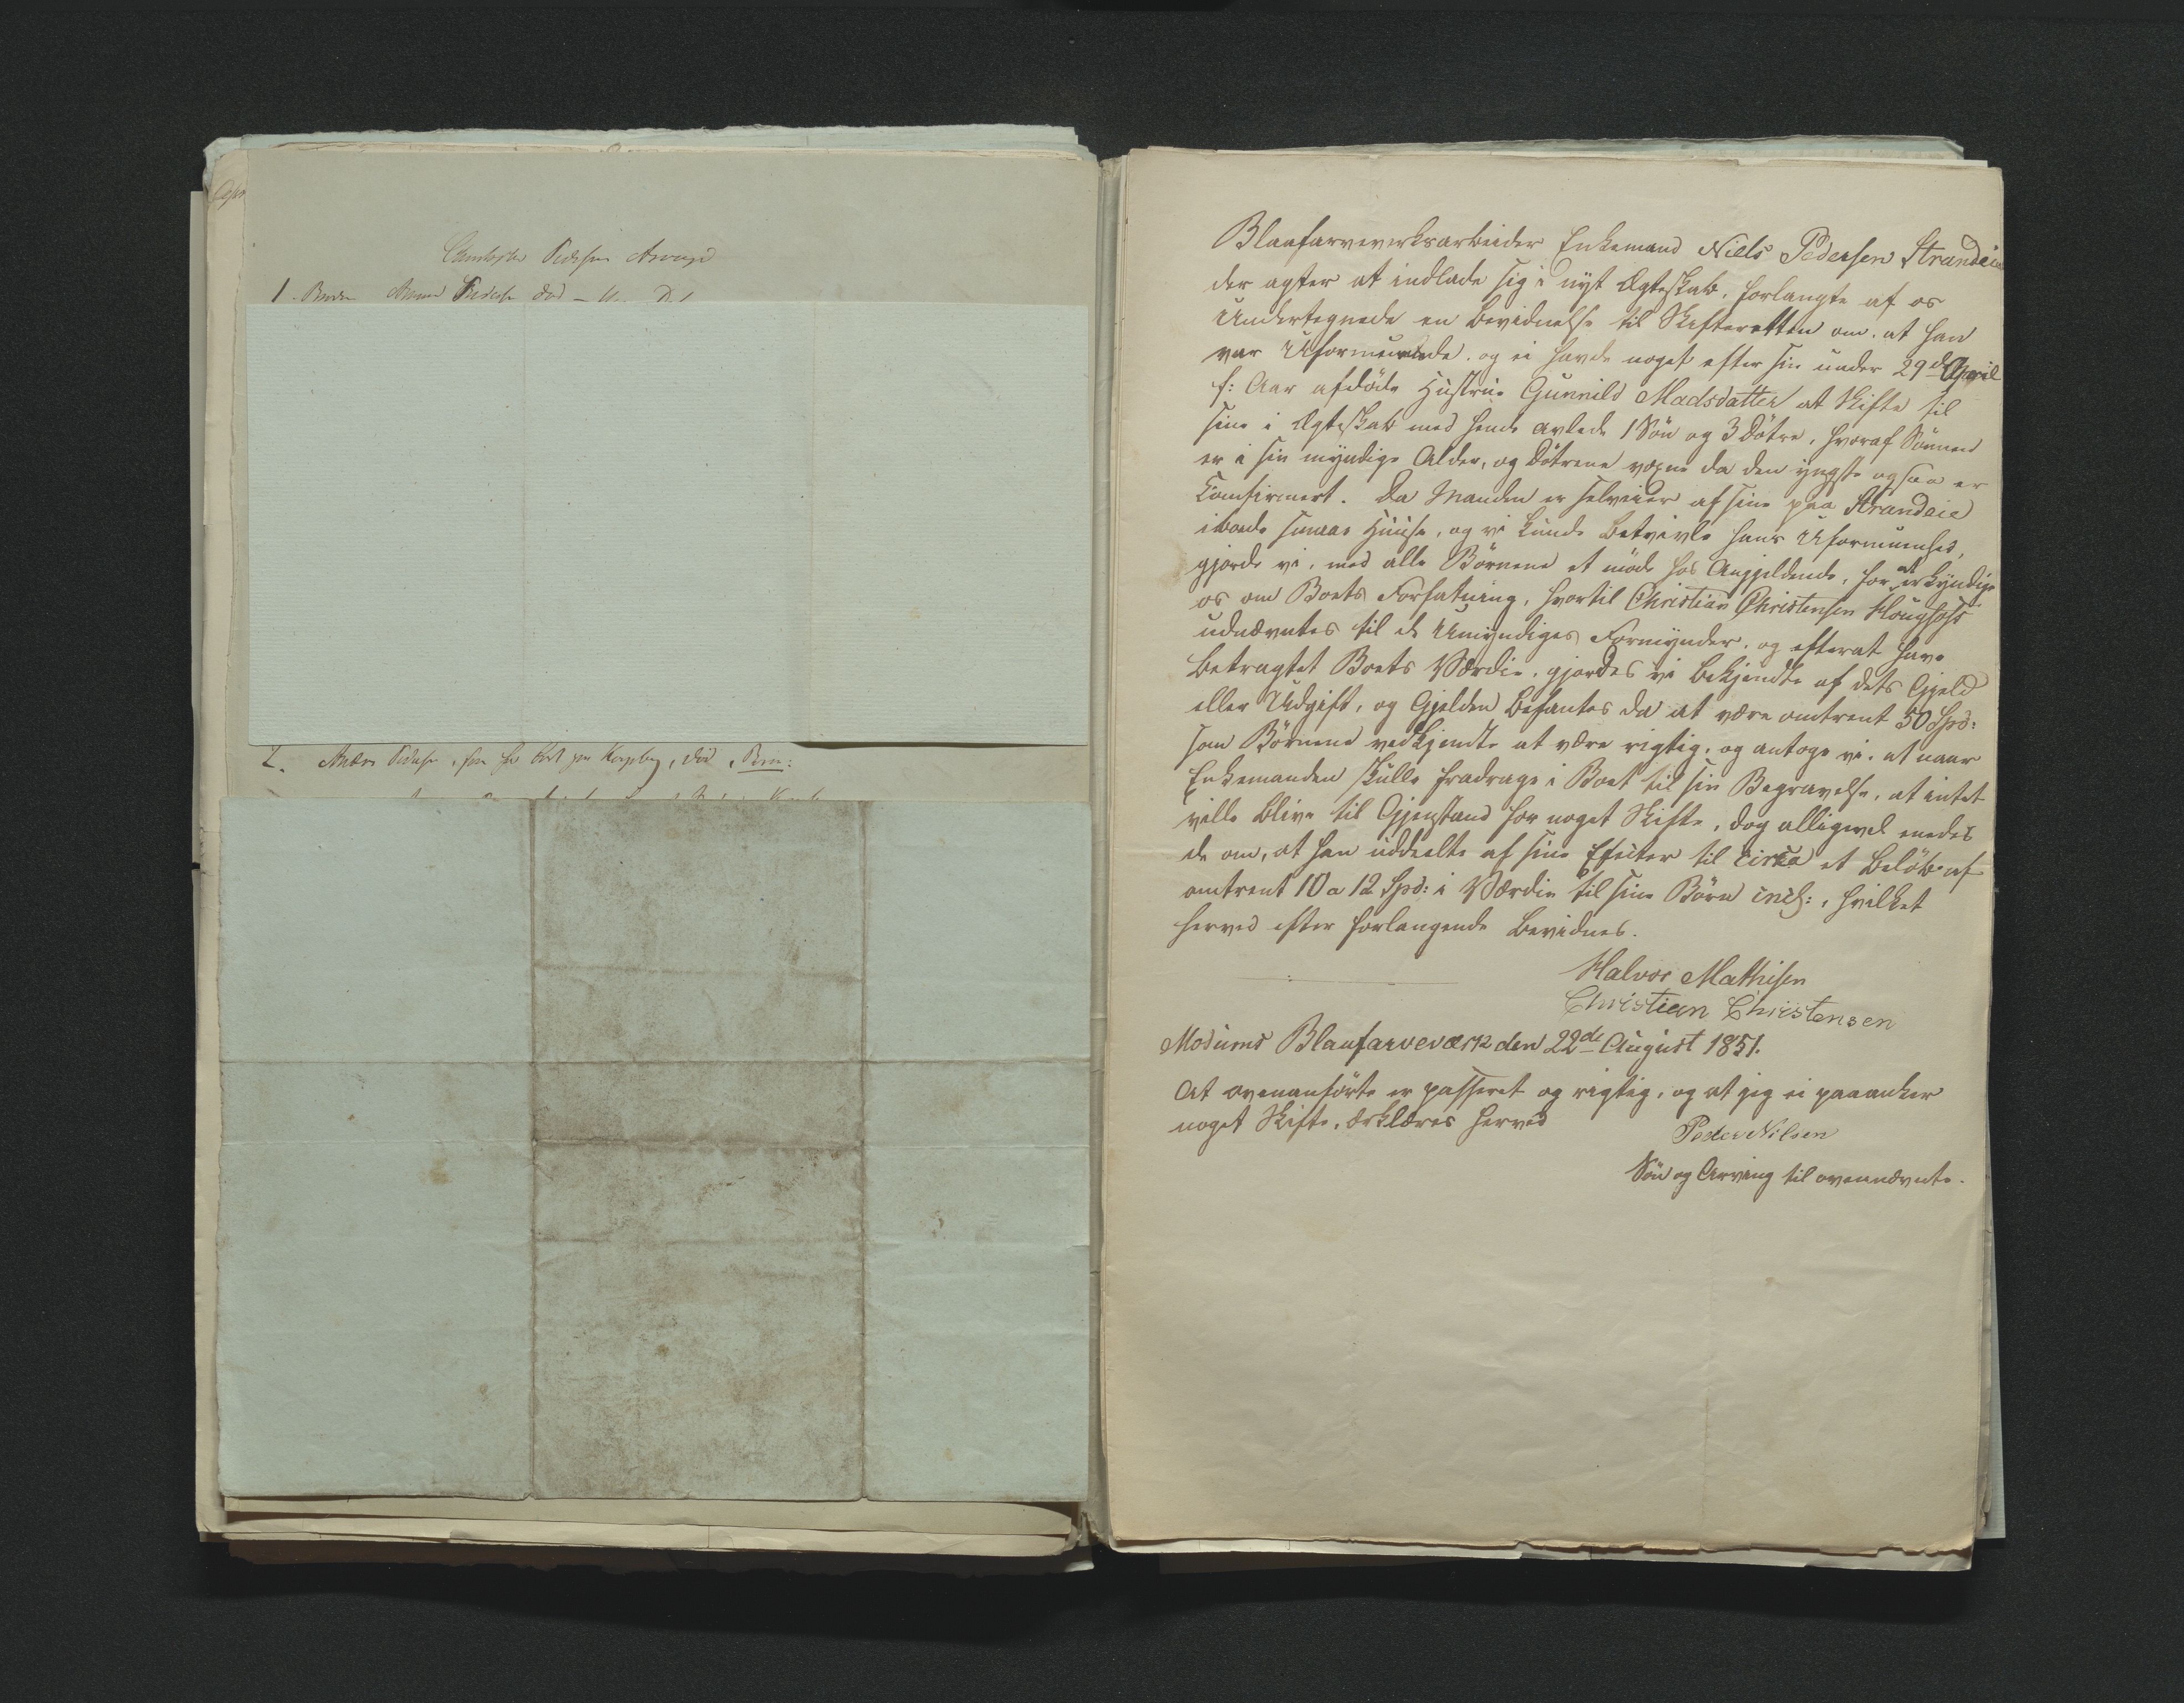 Pedersens
1. Peders død
2. Anders Peders, død, Børn:
Blaafarveverksarbeider Enkemand Niels Pedersen Strandeie
der agter at indlade sig i nyt Ægteskab, forlangte af os
Undertegnede en Bevidnelse til Skifteretten om, at han
var Uformuende, og ei havde noget efter sin under 29de April
f: Aar afdöde Hustrue Gunnild Madsdatter at Skifte til
sine i Ægteskab med hende avlede 1 Sön og 3 Dötre, hvoraf Sönnen
er i sin myndige Alder, og Dötrene voxne da den yngste ogsaa er
Confirmert. Da Manden er selveier af sine paa Strandeie
iboende smaae Huuse, og vi kunde betvivle hans Uformuenhed,
gjorde vi, med alle Börnene et möde hos Angjeldende, for at erkyndige
os om Boets Forfatning, hvortil Christian Christensen Hougfoss
udnævntes til de Umyndiges Formynder, og efterat have
betragtet Boets Værdie, gjordes vi bekjendte af dets Gjeld
eller Udgift, og Gjelden befantes da at være omtrent 50 Spd:
som Börnene vedkjendte at være rigtig, og antoge vi, at naar
Enkemanden skulle fradrage i Boet til sin Begravelse, at intet
ville blive til Gjenstand for noget Skifte, dog alligevel enedes
de om, at han uddeelte af sine Efecter til circa et Belöb af
omtrent 10 a 12 Spd: i Værdie til sine Börn incl:, hvilket
herved efter forlangende bevidnes.
Halvor Mathisen
Christian Christensen
Modums Blaufarveværk den 22de August 1851.
At ovenanförte er passeret og rigtig, og at jeg ei paaanker
noget Skifte, erklæres herved
Peder Nilsen
Sön og Arving til ovennævnte.